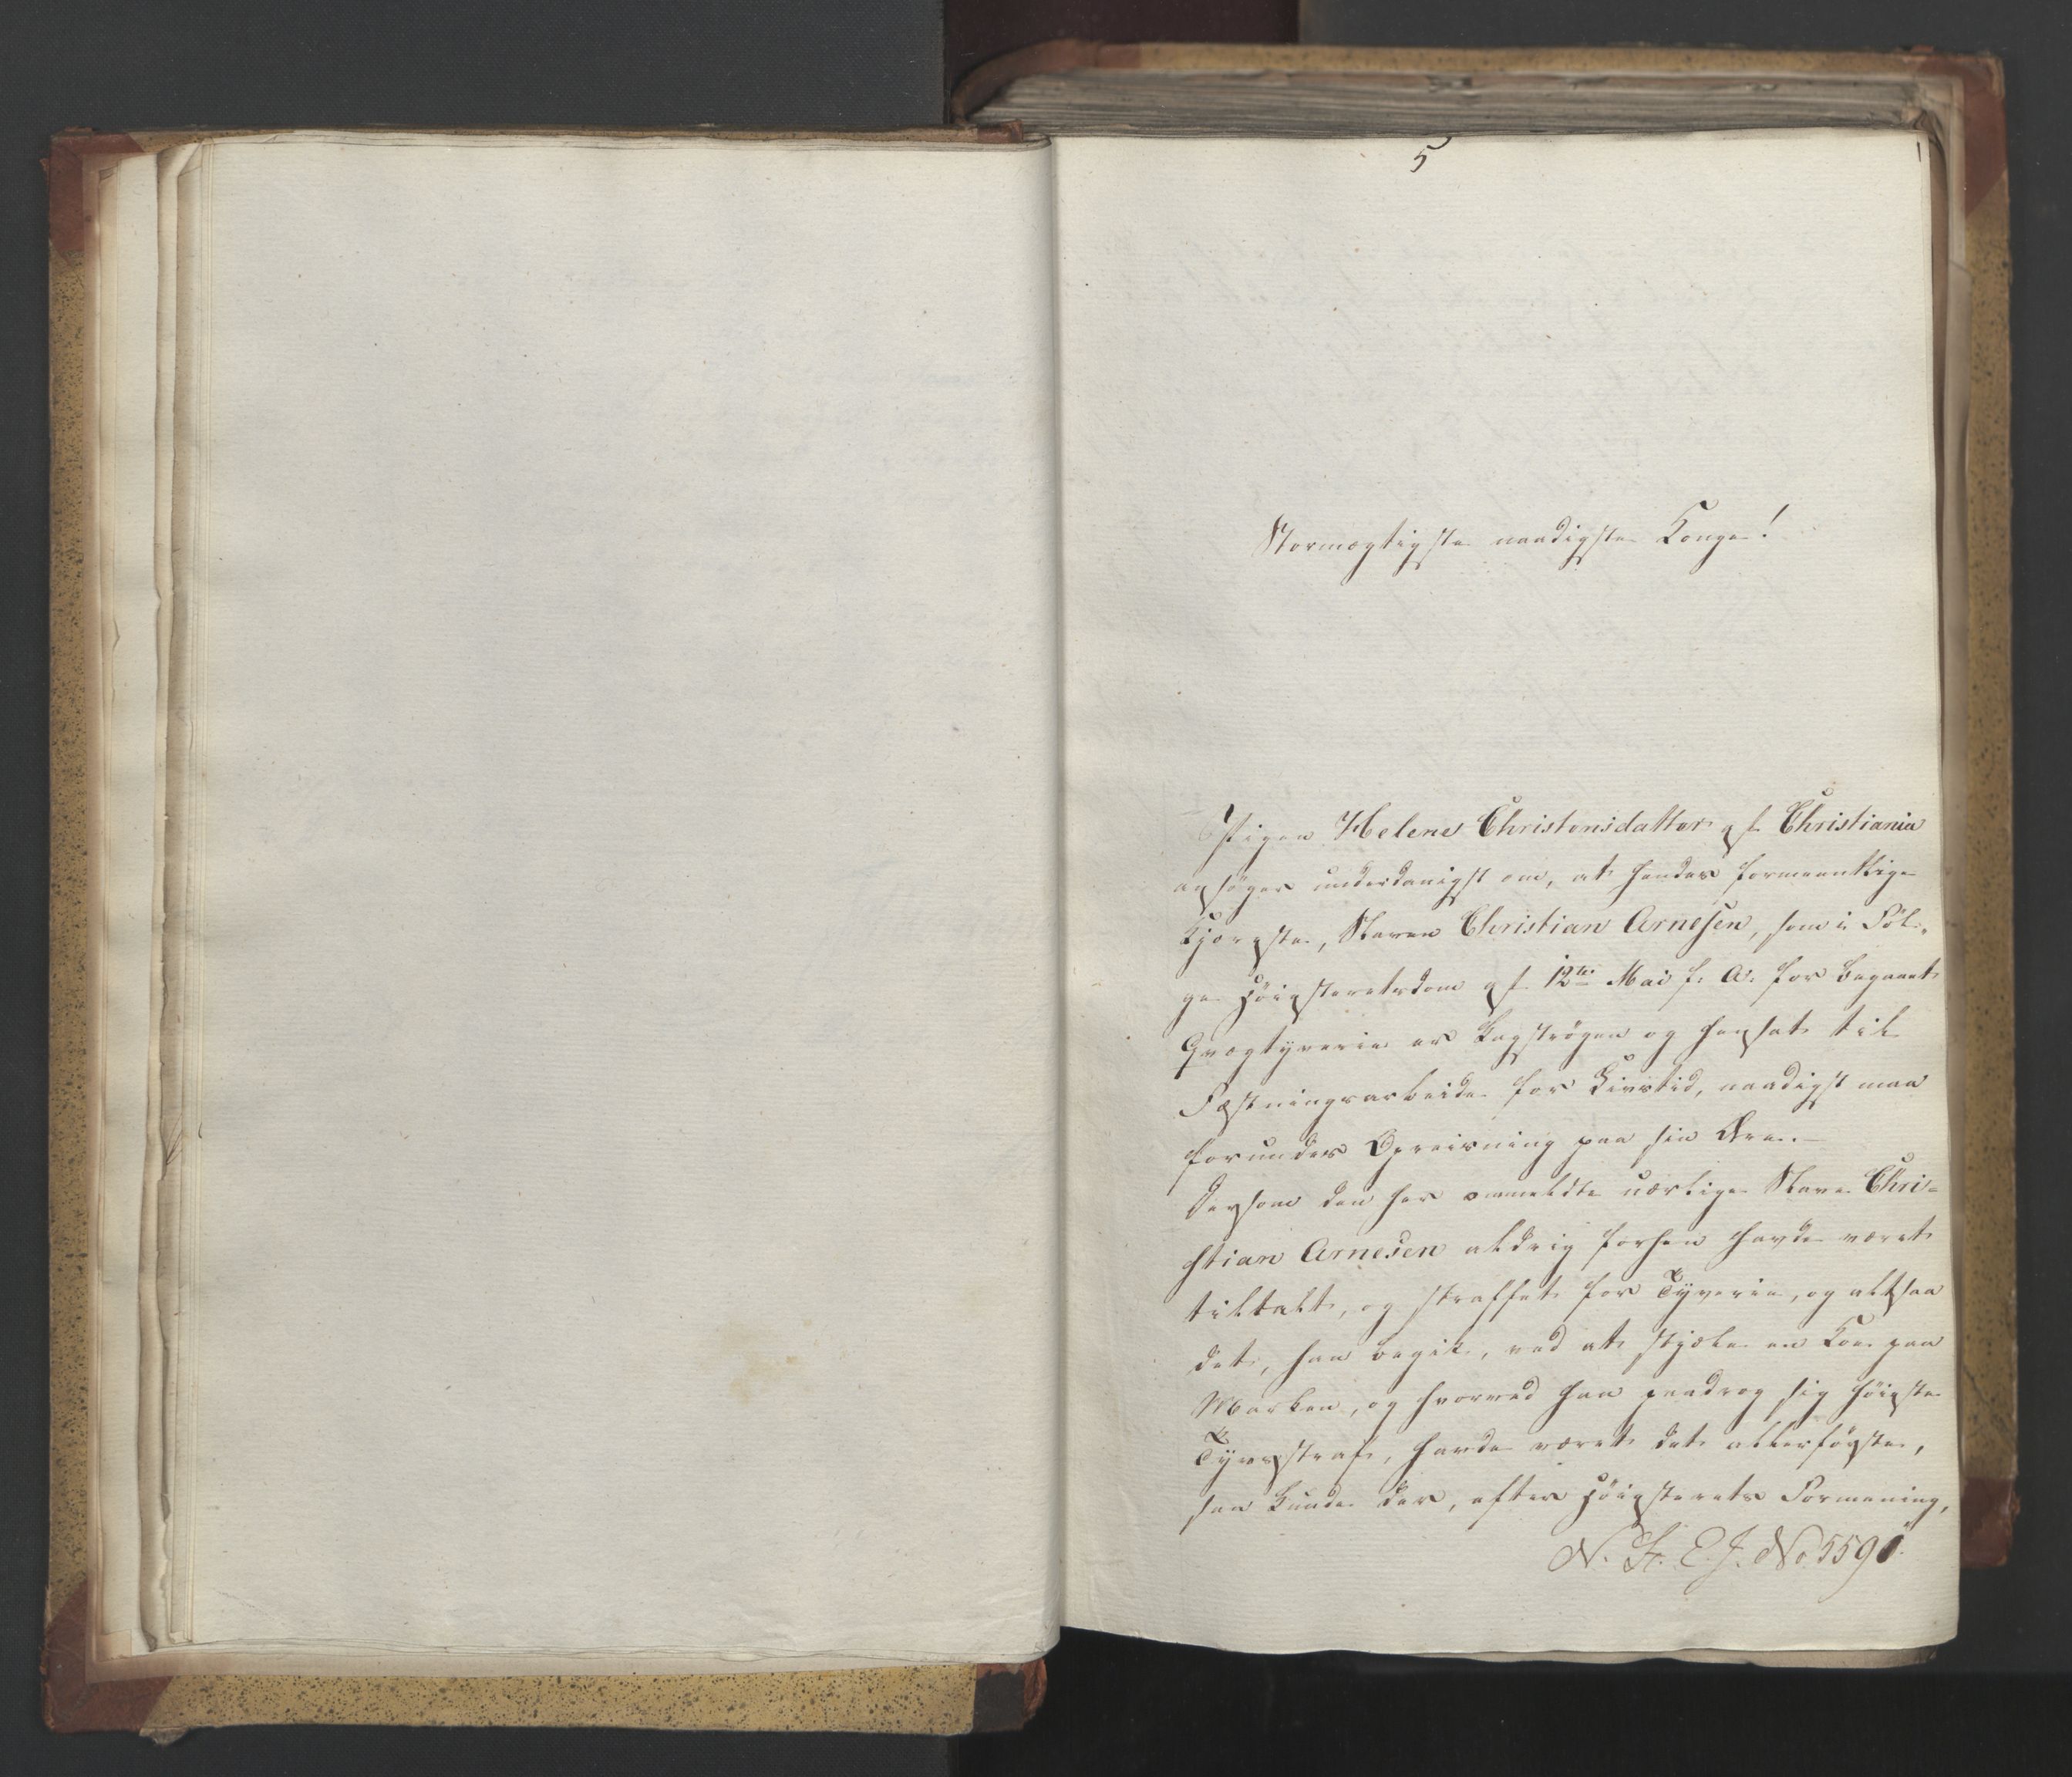 5
Stormægtigste naadigste Konge!
Pigen Helene Christensdatter af Christiania
ansøger underdanigst om, at hendes formeentlige
Kjæreste, Slaven Christian Arnesen, som i Føl-
ge Høiesteretsdom af 12te Mai f: A: for begaaet
Qvægtyverie er kagstrøgen og hensat til
Fæstningsarbeide for Livstid, naadigst maa
forundes Opreisning paa sin Ære.
Dersom den her ommeldte uærlige Slave Chri-
stian Arnesen aldrig forhen havde været
tiltalt, og straffet for Tyverie, og altsaa
det, han begik, ved at stjæle en Koe paa
Marken, og hvorved han paadrog sig høieste
Tyvsstraf, havde været det allerførste,
saa kunde der, efter Høiesterets Formening,
N. St. E. J. No. 5590